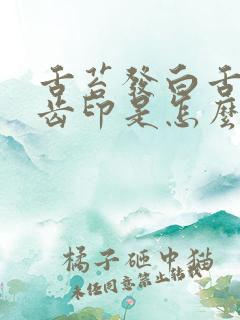 舌苔發白舌
齒印是怎麼
橘子砸中貓
未經同意禁止轉載